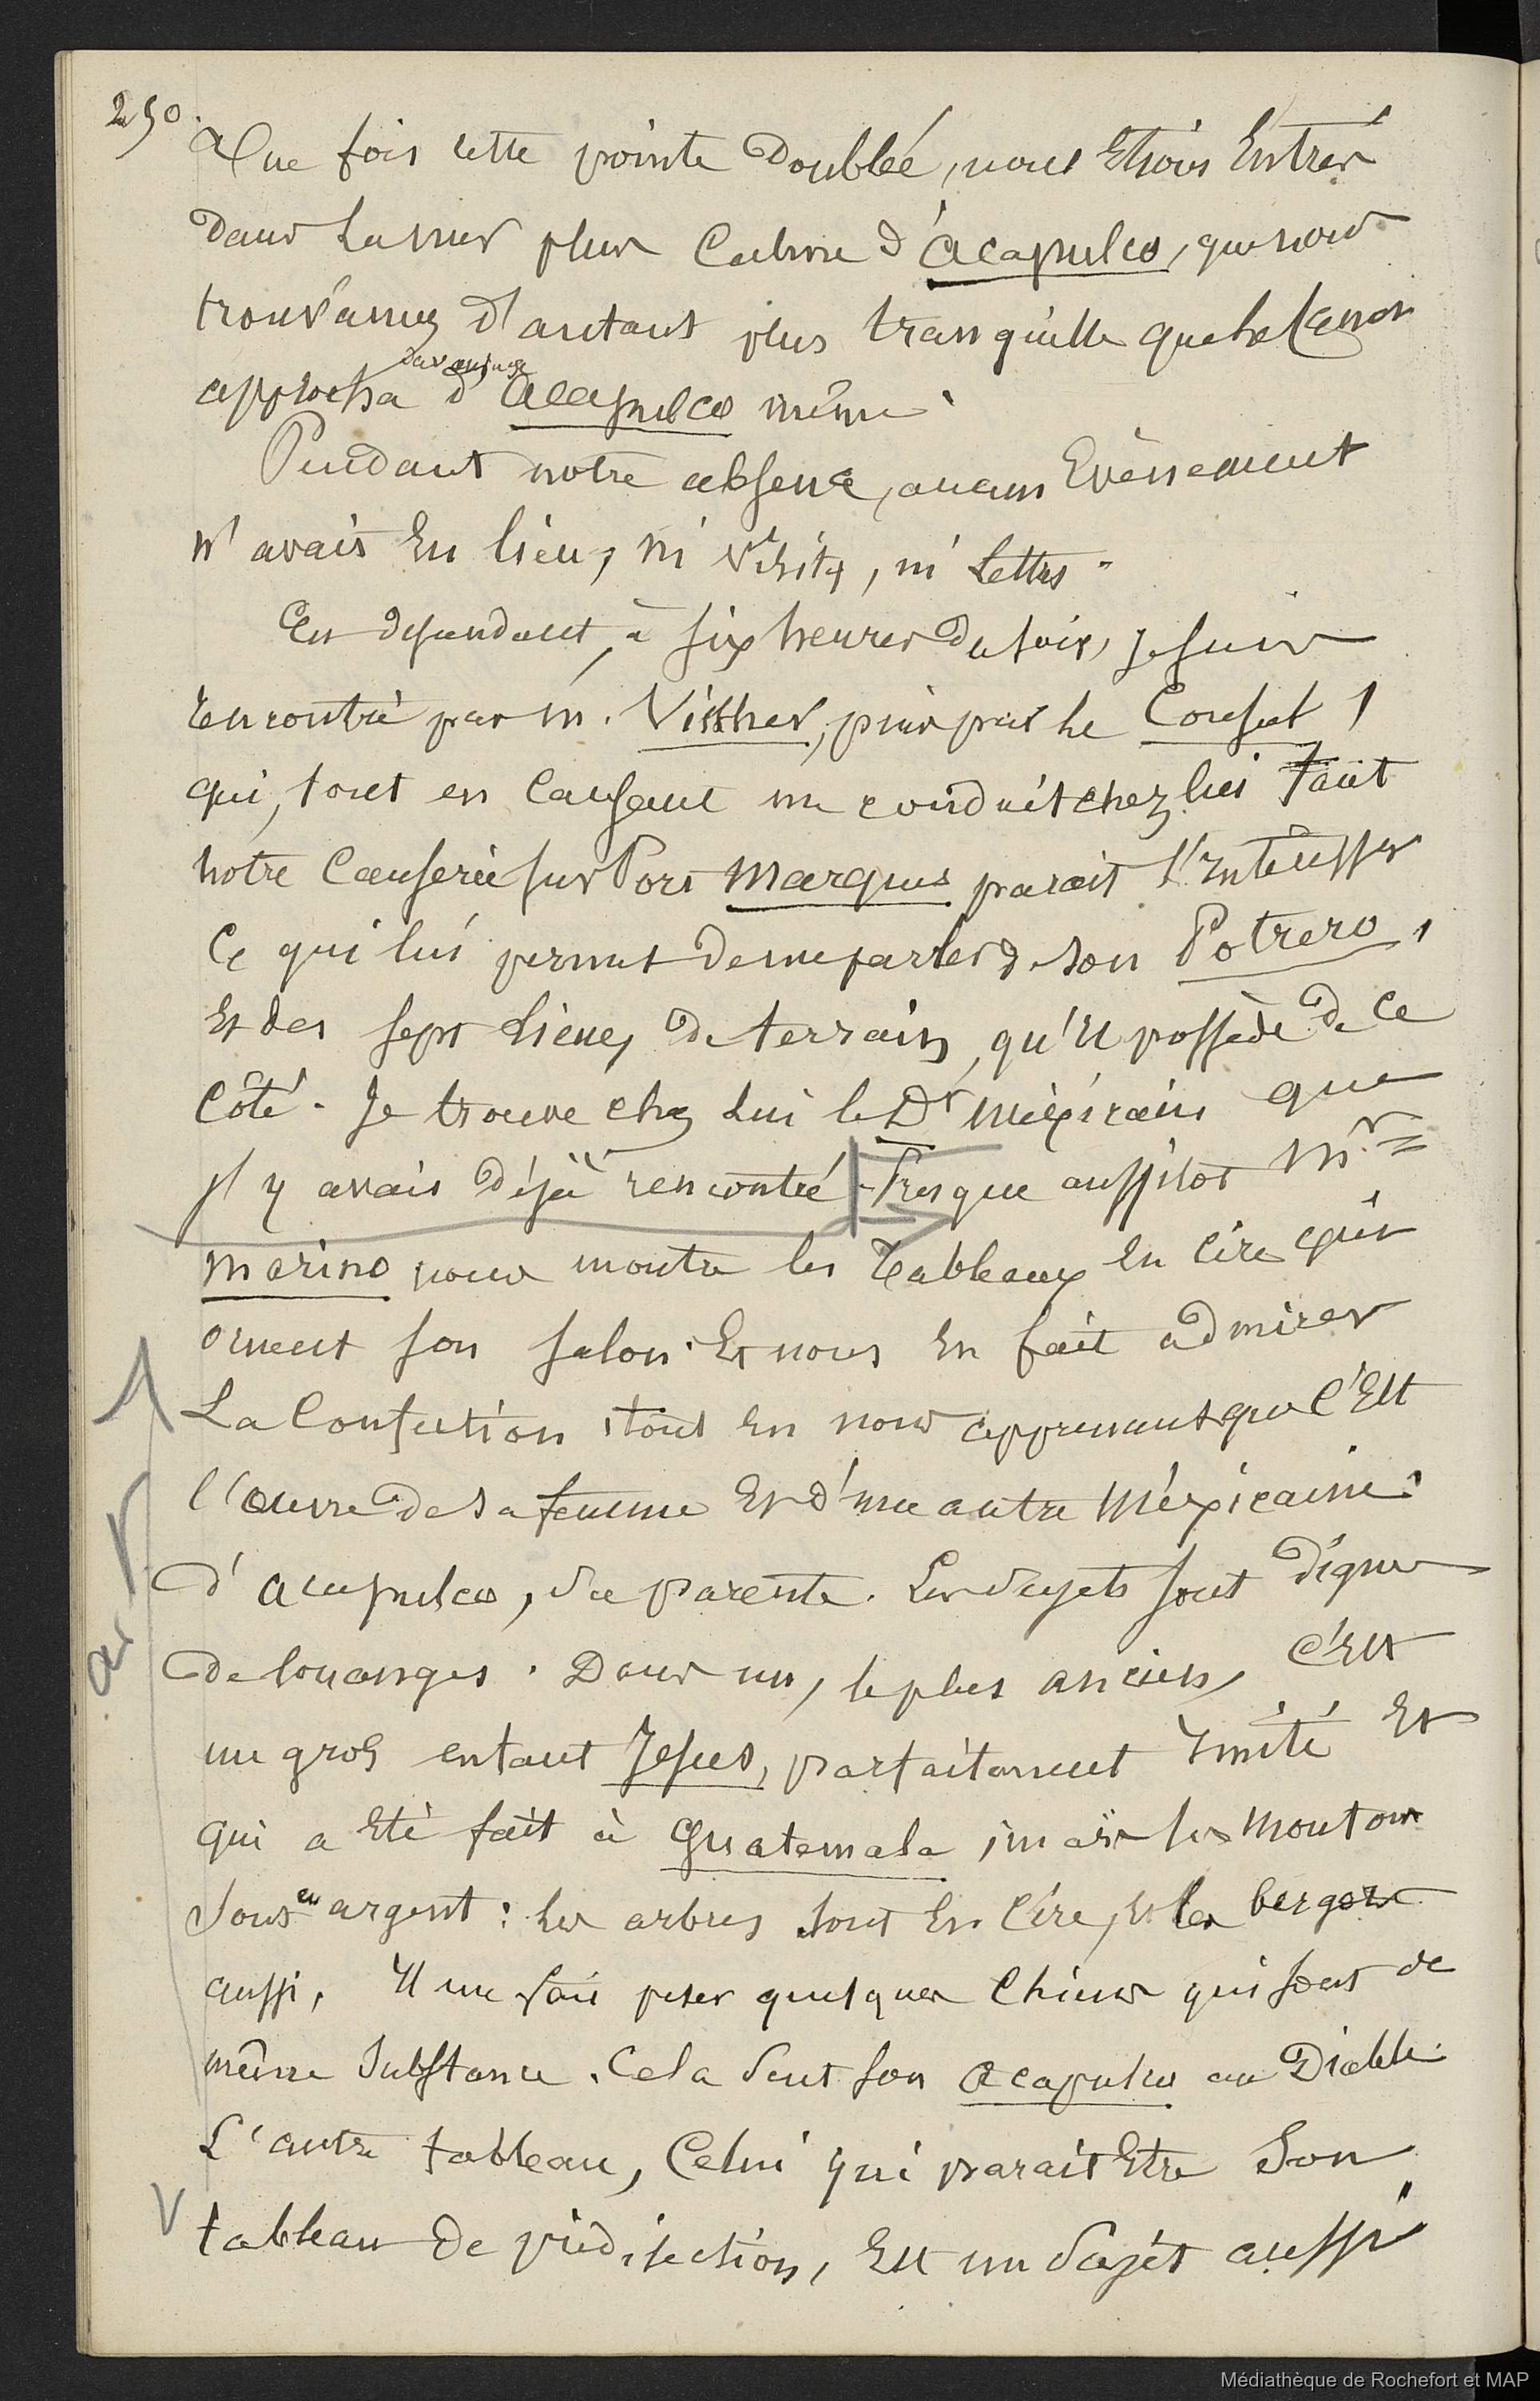 250.
Une fois cette pointe doublée, nous étions Entrés
dans la mer plus Calme d'Acapulco, que nous
trouvâmes d'autant plus tranquille que le Canot
approcha davantage d'Acapulco même.
Pendant notre absence, aucun Evènement
n'avait Eu lieu, ni visite, ni Lettres.
En descendant, à six heures du soir, je suis
rencontré par M. Visther, puis par le Consul,
qui, tout en Causant me conduit chez lui tant
notre Causerie sur Port Marques parait l'intéresser
Ce qui lui permet de me parler de son Potrero,
Et des sept Lieues de terrain, qu'il possède de ce
Côté. Je trouve chez Lui le Dr mexicain que
j'y avais déjà rencontré. Presque aussitot Mr
Merino nous montre les Tableaux En cire qui
ornent son salon. Et nous En fait admirer
La Confection, tout En nous apprenant que C'Est
l'oeuvre de sa femme Et d'une autre Méxicaine
d'Acapulco, sa parente. Les sujets sont dignes
de louanges. Dans un, le plus ancien, C'Est
un gros enfant Jesus, parfaitement imité Et
qui a Eté fait à Guatemala, mais les Moutons
sont en argent : les arbres sont En Cire, Et les bergers
aussi. Il me fait peser quelques Chiens qui sont de
même Substance. Cela sent son Acapulco au Diable.
L'autre tableau, Celui qui parait Etre Son
tableau de prédilection, Est un Sujet aussi
a r